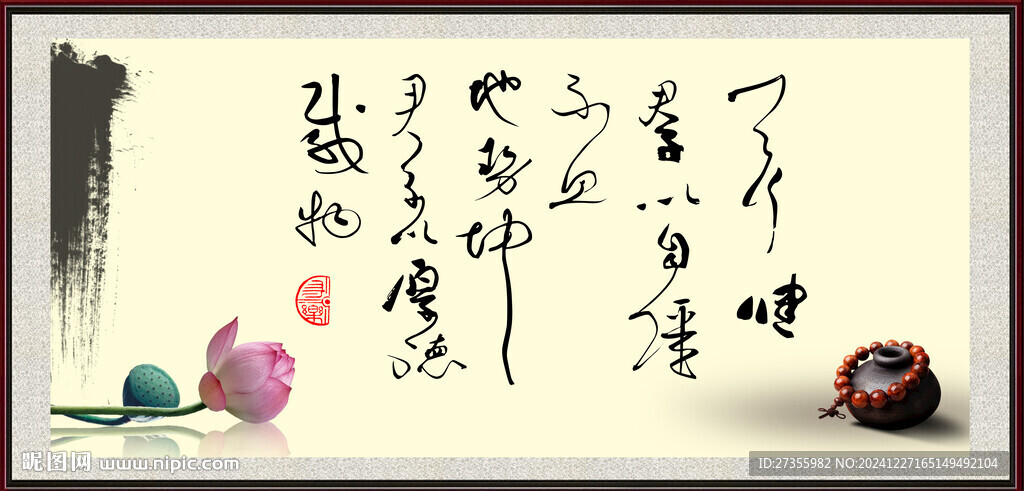 天行健
君子以自强
不息
地势坤
君子以厚德
载物
昵图网 www.nipic.com
ID:27355982 NO:20241227165149492104